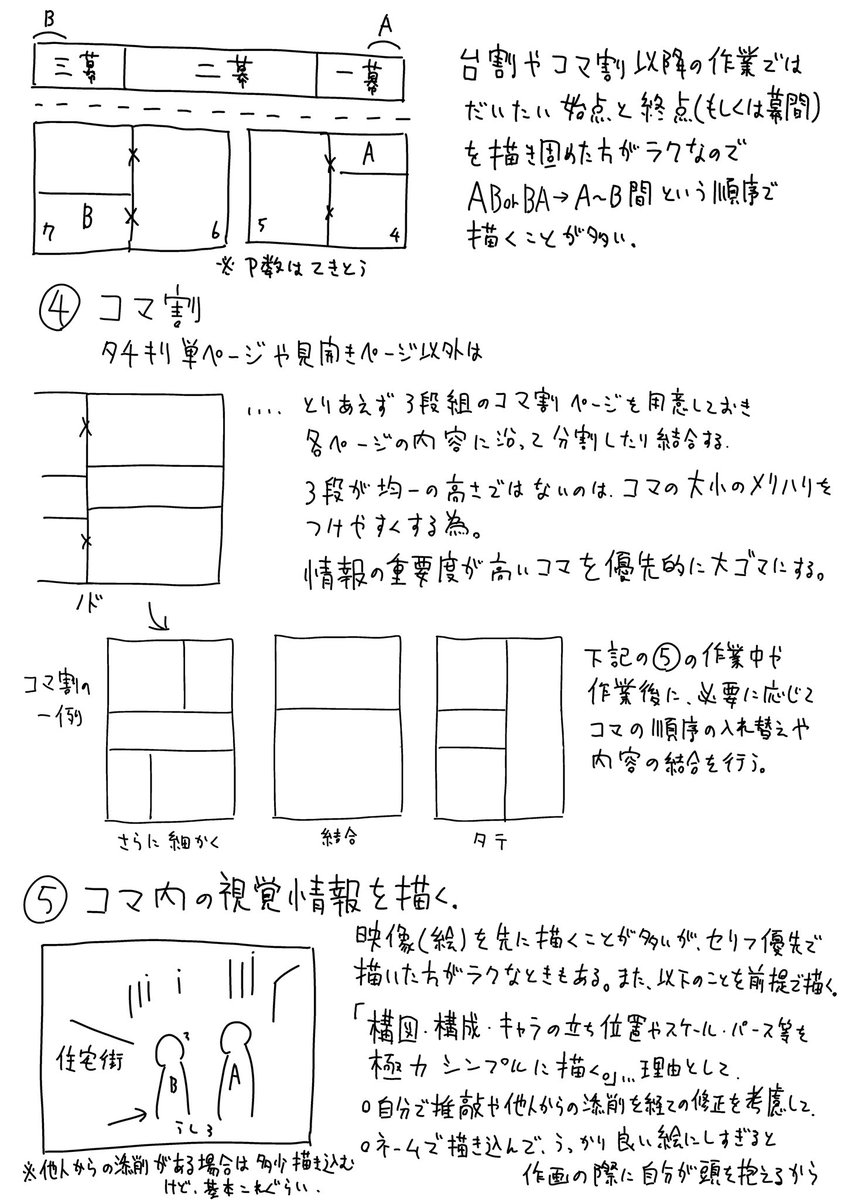 B
A
三幕
二幕
一幕
台割やコマ割以降の作業では
だいたい始点と終点(もしくは幕間)
を描き固めた方がラクなので
AB or BA→A~B間という順序で
描くことが多い.
A
B
7
6
5
4
※P数はてきとう
④コマ割
タチキリ単ページや見開きページ以外は
‥‥とりあえず3段組のコマ割ページを用意しておき
各ページの内容に沿って分割したり結合する.
3段が均一の高さではないのは、コマの大小のメリハリを
つけやすくする為。
情報の重要度が高いコマを優先的に大ゴマにする。
ノド
コマ割の
一例
さらに細かく
結合
タテ
下記の⑤の作業中や
作業後に、必要に応じて
コマの順序の入れ替えや
内容の結合を行う。
⑤コマ内の視覚情報を描く.
映像(絵)を先に描くことが多いが、セリフ優先で
描いた方がラクなときもある。また、以下のことを前提で描く。
「構図・構成・キャラの立ち位置やスケール・パース等を
極力シンプルに描く。」…理由として.
○自分で推敲や他人からの添削を経ての修正を考慮して.
○ネームで描き込んで、うっかり良い絵にしすぎると
作画の際に自分が頭を抱えるから
住宅街
B
A
うしろ
※他人からの添削がある場合は多少描き込む
けど、基本これぐらい.